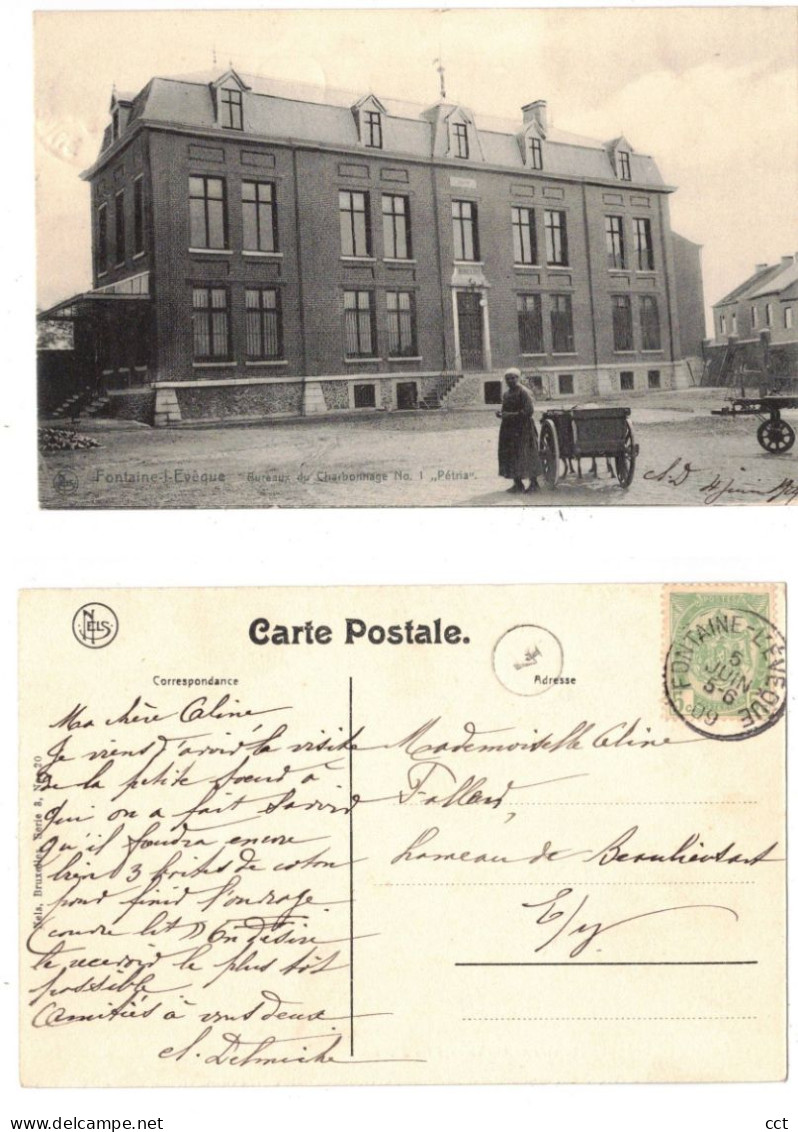 Fontaine-l-Evêque Bureaux du Charbonnage No. 1 „Pétria".
A. D 4 juin 1909
NELS
Carte Postale.
Correspondance
Adresse
FONTAINE-L'EVEQUE
5
JUIN
5-6
09
Nels, Bruxelles, Serie 3, No. 20
Ma chère Céline
Je viens d'avoir la visite
de la petite soeur à
qui on a fait savoir
qu'il faudra encore
bien 3 boites de coton
pour finir l'ouvrage
(couvre lit) On désire
le recevoir le plus tôt
possible
Amitiés à vous deux
A. Delmiche
Mademoiselle Céline
hameau de Beaulieusart
E/y
delcampe.net
cct